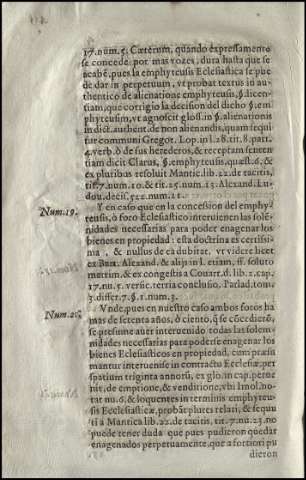 17. num. 5. Cæterum, quando expressamente
se concede por mas vozes, dura hasta que se
acabē, pues la emphyteusis Ecclesiastica se pue
de dar in perpetuum, vt probat textus in au-
thentico de alienatione emphyteusis, §. licen-
tiam, que corrigio la decision del dicho §. em-
phyteusim, vt agnoscit glos. in §. alienationis
in dict. authent. de non alienandis, quam sequi
tur communi Gregor. Lop. in l. 28. tit. 8. part
4. verb. ò de sus herederos, & receptam senten
tiam dicit Clarus, §. emphyteusis, quæst. 6. &
ex pluribus resoluit Mantic. lib. 22. de tacitis,
tit. 7. num. 10. & tit. 25. num. 13. Alexand. Lu-
dou. decis. 522. num. 11.
Num. 19.
Y en caso que en la concession del emphy-
teusis, ò foro Ecclesiastico interuienen las solē-
nidades necessarias para poder enagenar los
bienes en propiedad: esta doctrina es certissi-
ma, & nullus de ea dubitat. vt videre licet
ex Bart. Alexand. & alijs in l. etiam, ff. soluto
metrim. & ex congestis a Couarr. d. lib. 2. cap.
17. nu. 5. versic. tertia conclusio, Parlad. tom.
3. differ. 7. §. 1. num. 3.
Num. 20.
Vnde, pues en nuestro caso ambos foros ha
mas de setenta años, ò ciento, q̃ se cōcedierō,
se presume auer interuenido todas las solem-
nidades necessarias para poderse enagenar los
bienes Ecclesiasticos en propiedad, cum præsu
mantur interuenisse in contractu Ecclesiæ, per
spatium triginta annorū, ex glo. in cap. perue
nit, de emptione, & venditione, vbi Imol. no-
tat nu. 6. & loquentes in terminis emphyteu-
sis Ecclesiasticæ, probāt plures relati, & sequu
ti a Mantica lib. 22. de tacitis, tit. 7. nu. 23. no
puede tener duda que pues pudieron quedar
enagenados perpetuamente, que a fortiori pu
dieron